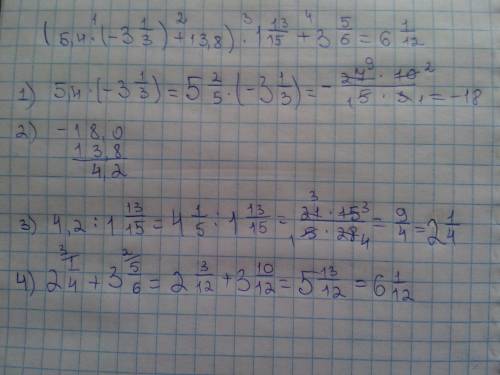 (5,4 · (-3 1/3) + 13,8) · 1 13/15 + 3 5/6 = 6 1/12
1) 5,4 · (-3 1/3) = 5 2/5 · (-3 1/3) = - 27 · 10 / 5 · 3 = -18
2) -18,0
13,8
4,2
3) 4,2 : 1 13/15 = 4 1/5 : 1 13/15 = 21 · 15 / 5 · 28 = 9/4 = 2 1/4
4) 2 1/4 + 3 5/6 = 2 3/12 + 3 10/12 = 5 13/12 = 6 1/12